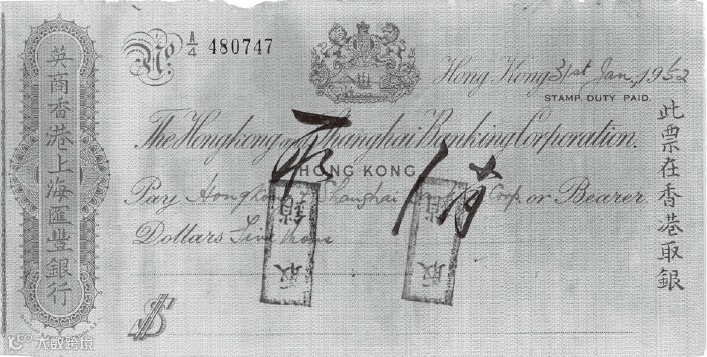 英商香港上海滙豐銀行
No. A/4 480747
Hong Kong 31st Jan, 1952
STAMP DUTY PAID.
The Hongkong and Shanghai Banking Corporation.
HONG KONG
Pay Hongkong & Shanghai Coop. or Bearer
Dollars
$
此票在香港取銀
大数跨境